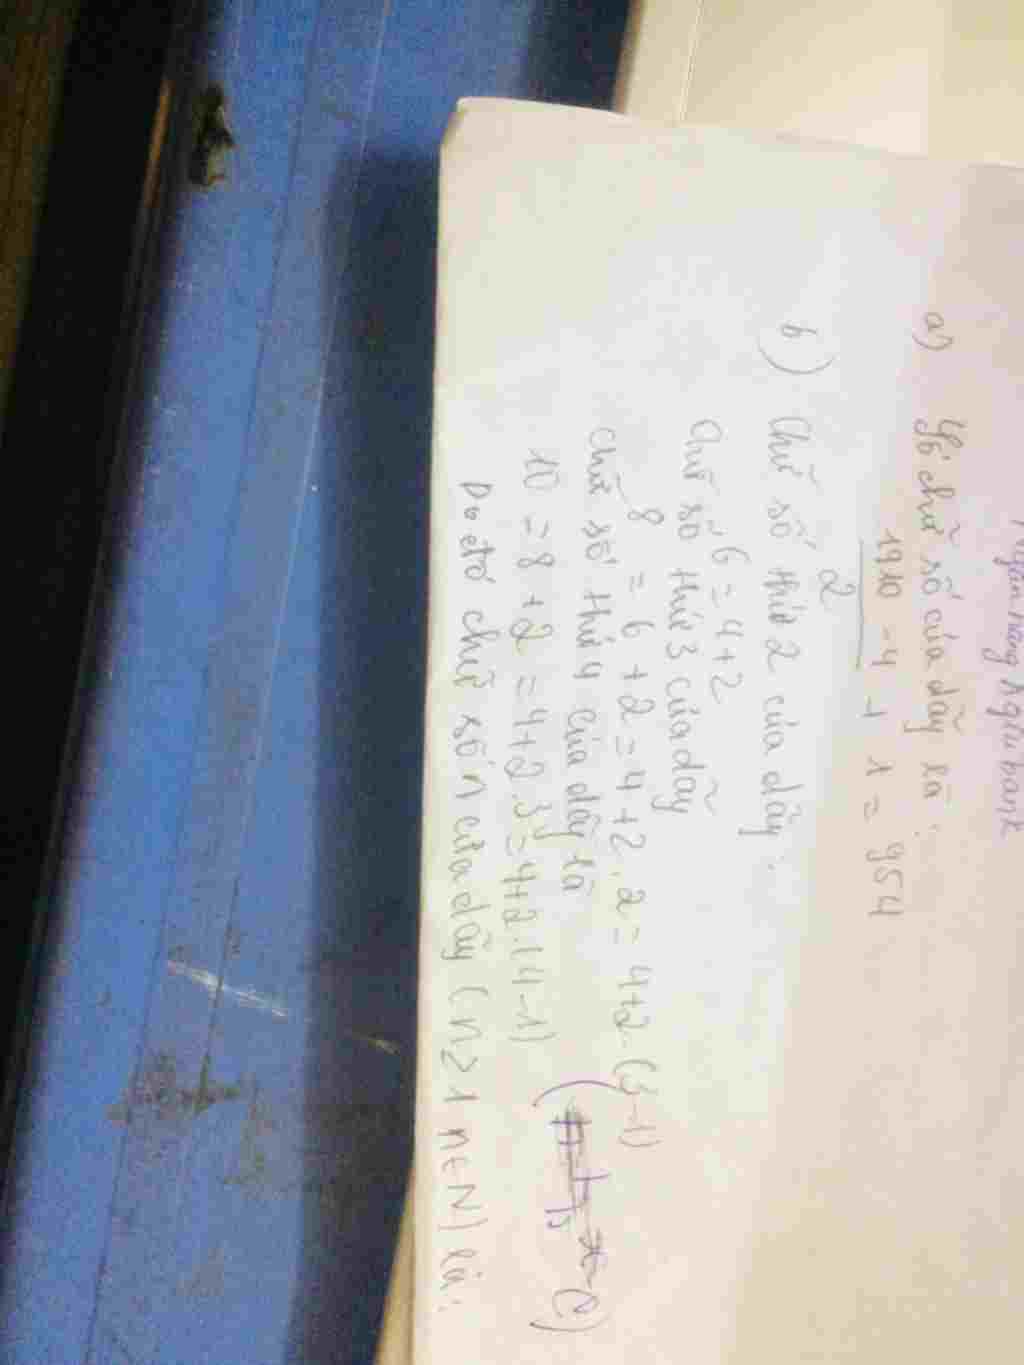 Ngân hàng Agribank
a) Số chữ số của dãy là:
1910 - 4 + 1 = 954
2
b) Chữ số thứ 2 của dãy:
6 = 4+2
Chữ số thứ 3 của dãy
8 = 6 + 2 = 4 + 2.2 = 4+2.(3-1)
Chữ số thứ 4 của dãy là
10 = 8 + 2 = 4+2.3 = 4+2.(4-1)
Do đó chữ số n của dãy (n≥1 n∈N) là: